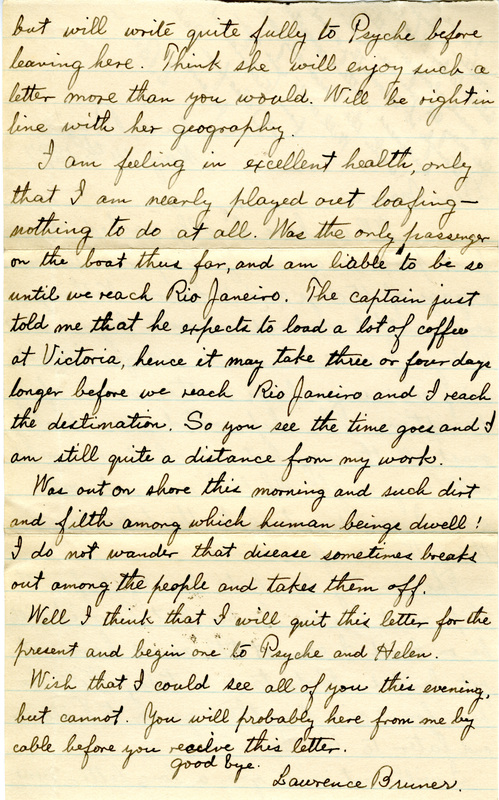 but will write quite fully to Psyche before
leaving here. Think she will enjoy such a
letter more than you would. Will be right in
line with her geography.
I am feeling in excellent health, only
that I am nearly played out loafing—
nothing to do at all. Was the only passenger
on the boat thus far, and am liable to be so
until we reach Rio Janeiro. The captain just
told me that he expects to load a lot of coffee
at Victoria, hence it may take three or four days
longer before we reach Rio Janeiro and I reach
the destination. So you see the time goes and I
am still quite a distance from my work.
Was out on shore this morning and such dirt
and filth among which human beings dwell!
I do not wander that disease sometimes breaks
out among the people and takes them off.
Well I think that I will quit this letter for the
present and begin one to Psyche and Helen.
Wish that I could see all of you this evening,
but cannot. You will probably here from me by
cable before you receive this letter.
good bye.
Lawrence Bruner.